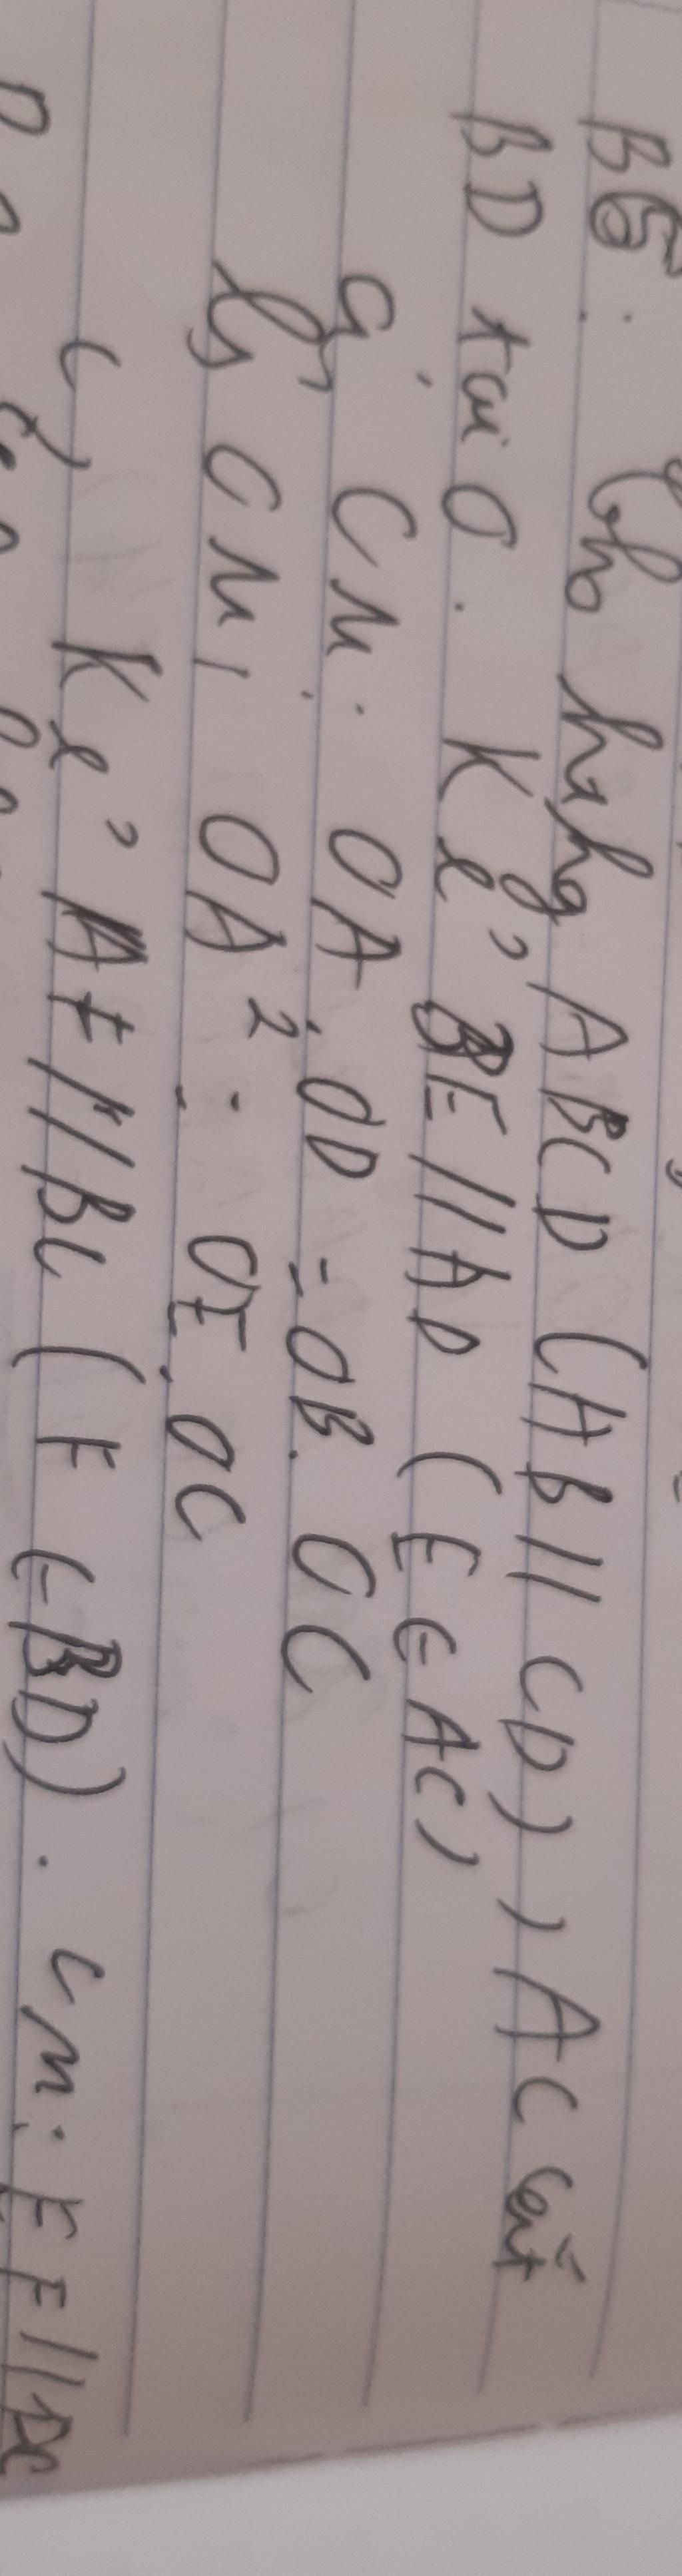 B5: Cho hthg ABCD (AB // CD), AC cắt
BD tại O. Kẻ BE // AD (E ∈ AC)
a, CM: OA.OD = OB.OC
b, CM: OA² = OE.OC
c, Kẻ AF // BC (F ∈ BD). CM: EF // DC